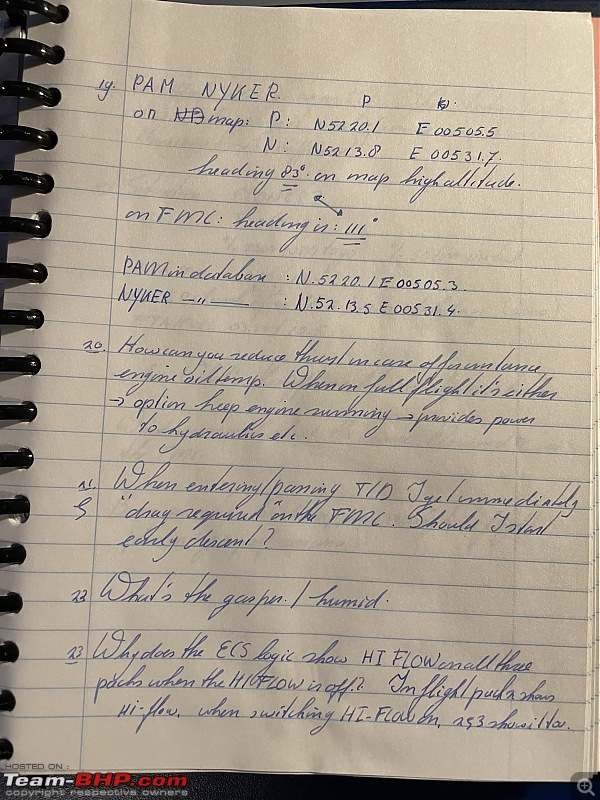 19. PAM NYKER. P N.
on ND map: P: N5220.1 E 00505.5
N: N5213.8 E 00531.7.
heading 83° on map high altitude.
on FMC: heading is: 111°
PAM in database : N.5220.1 E00505.3.
NYKER —"— : N.52.13.5 E00531.4.
20. How can you reduce thrust in case of for instance,
engine oil temp. When on full flight it's either
→ option keep engine running → provides power
to hydraulics etc.
21. When entering/passing T/D I get immediately
"drag required" on the FMC. Should I start
early descent?
22 What's the gasper / humid.
23 Why does the ECS logic show HI FLOW on all three
packs when the HI FLOW is off? In flight pack 2 shows
Hi-flow, when switching HI-FLOW on, 1&3 show it too.
HOSTED ON :
Team-BHP.com
copyright respective owners